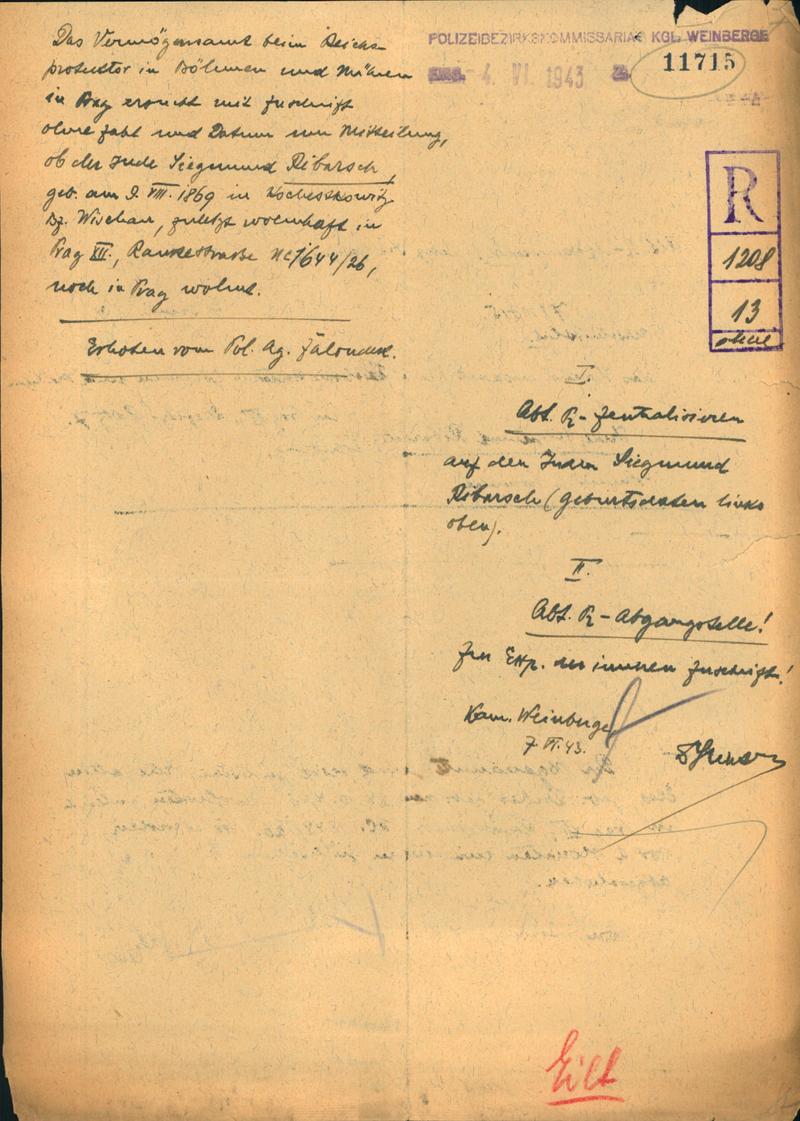 POLIZEIBEZIRKSKOMMISSARIAT KGL. WEINBERGE
4. VI. 1943
11715
Das Vermögensamt beim Reichs-
protektor in Böhmen und Mähren
in Prag ersucht mit Zuschrift
ohne Zahl und Datum um Mitteilung,
ob der Jude Siegmund Ribarsch,
geb. am 9. VIII. 1869 in
Bz. Wischau, zuletzt wohnhaft in
Prag XII., Rankestrasse NC 1644/26,
noch in Prag wohnt.
Erhoben vom Pol. Ag.
R
1208
13
I.
Abt. R - Zentralisieren
auf den Juden Siegmund
Ribarsch (Geburtsdaten links
oben).
II.
Abt. R - Abgangstelle!
Zur Exp. der inneren Zuschrift!
Kom. Weinberge
7. VI. 43.
Eilt